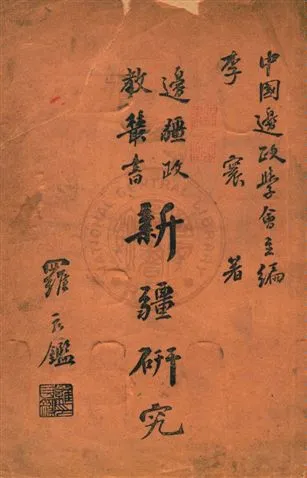 中國邊政學會主編
李寰著
邊疆政
教叢書
新疆研究
羅良鑑
NATIONAL CENTRAL LIBRARY